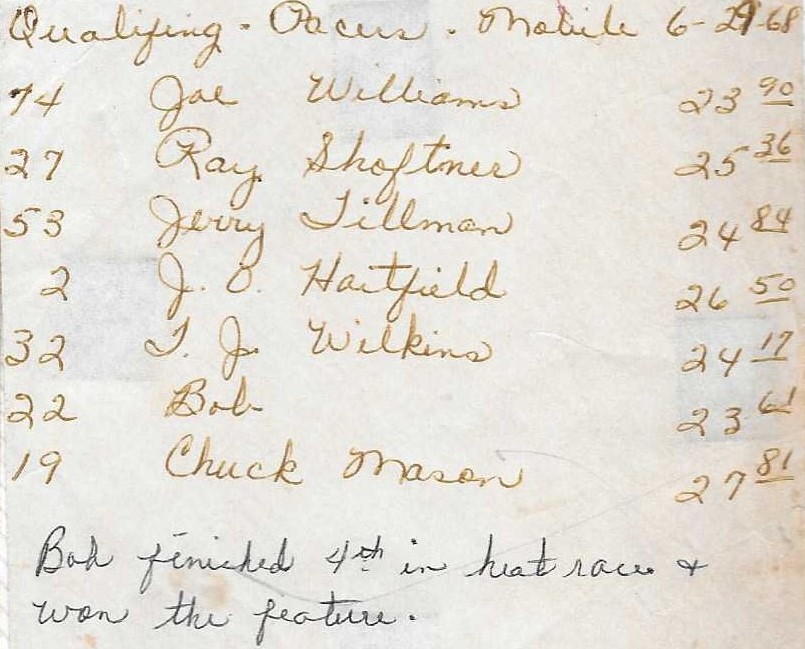 Qualifying - Races - Mobile 6-29-68
14 Joe Williams 23 90
27 Ray Shoftner 25 36
53 Jerry Tillman 24 84
2 J. O. Hartfield 26 50
32 T. J. Wilkins 24 17
22 Bob 23 61
19 Chuck Mason 27 81
Bob finished 4th in heat race &
won the feature.